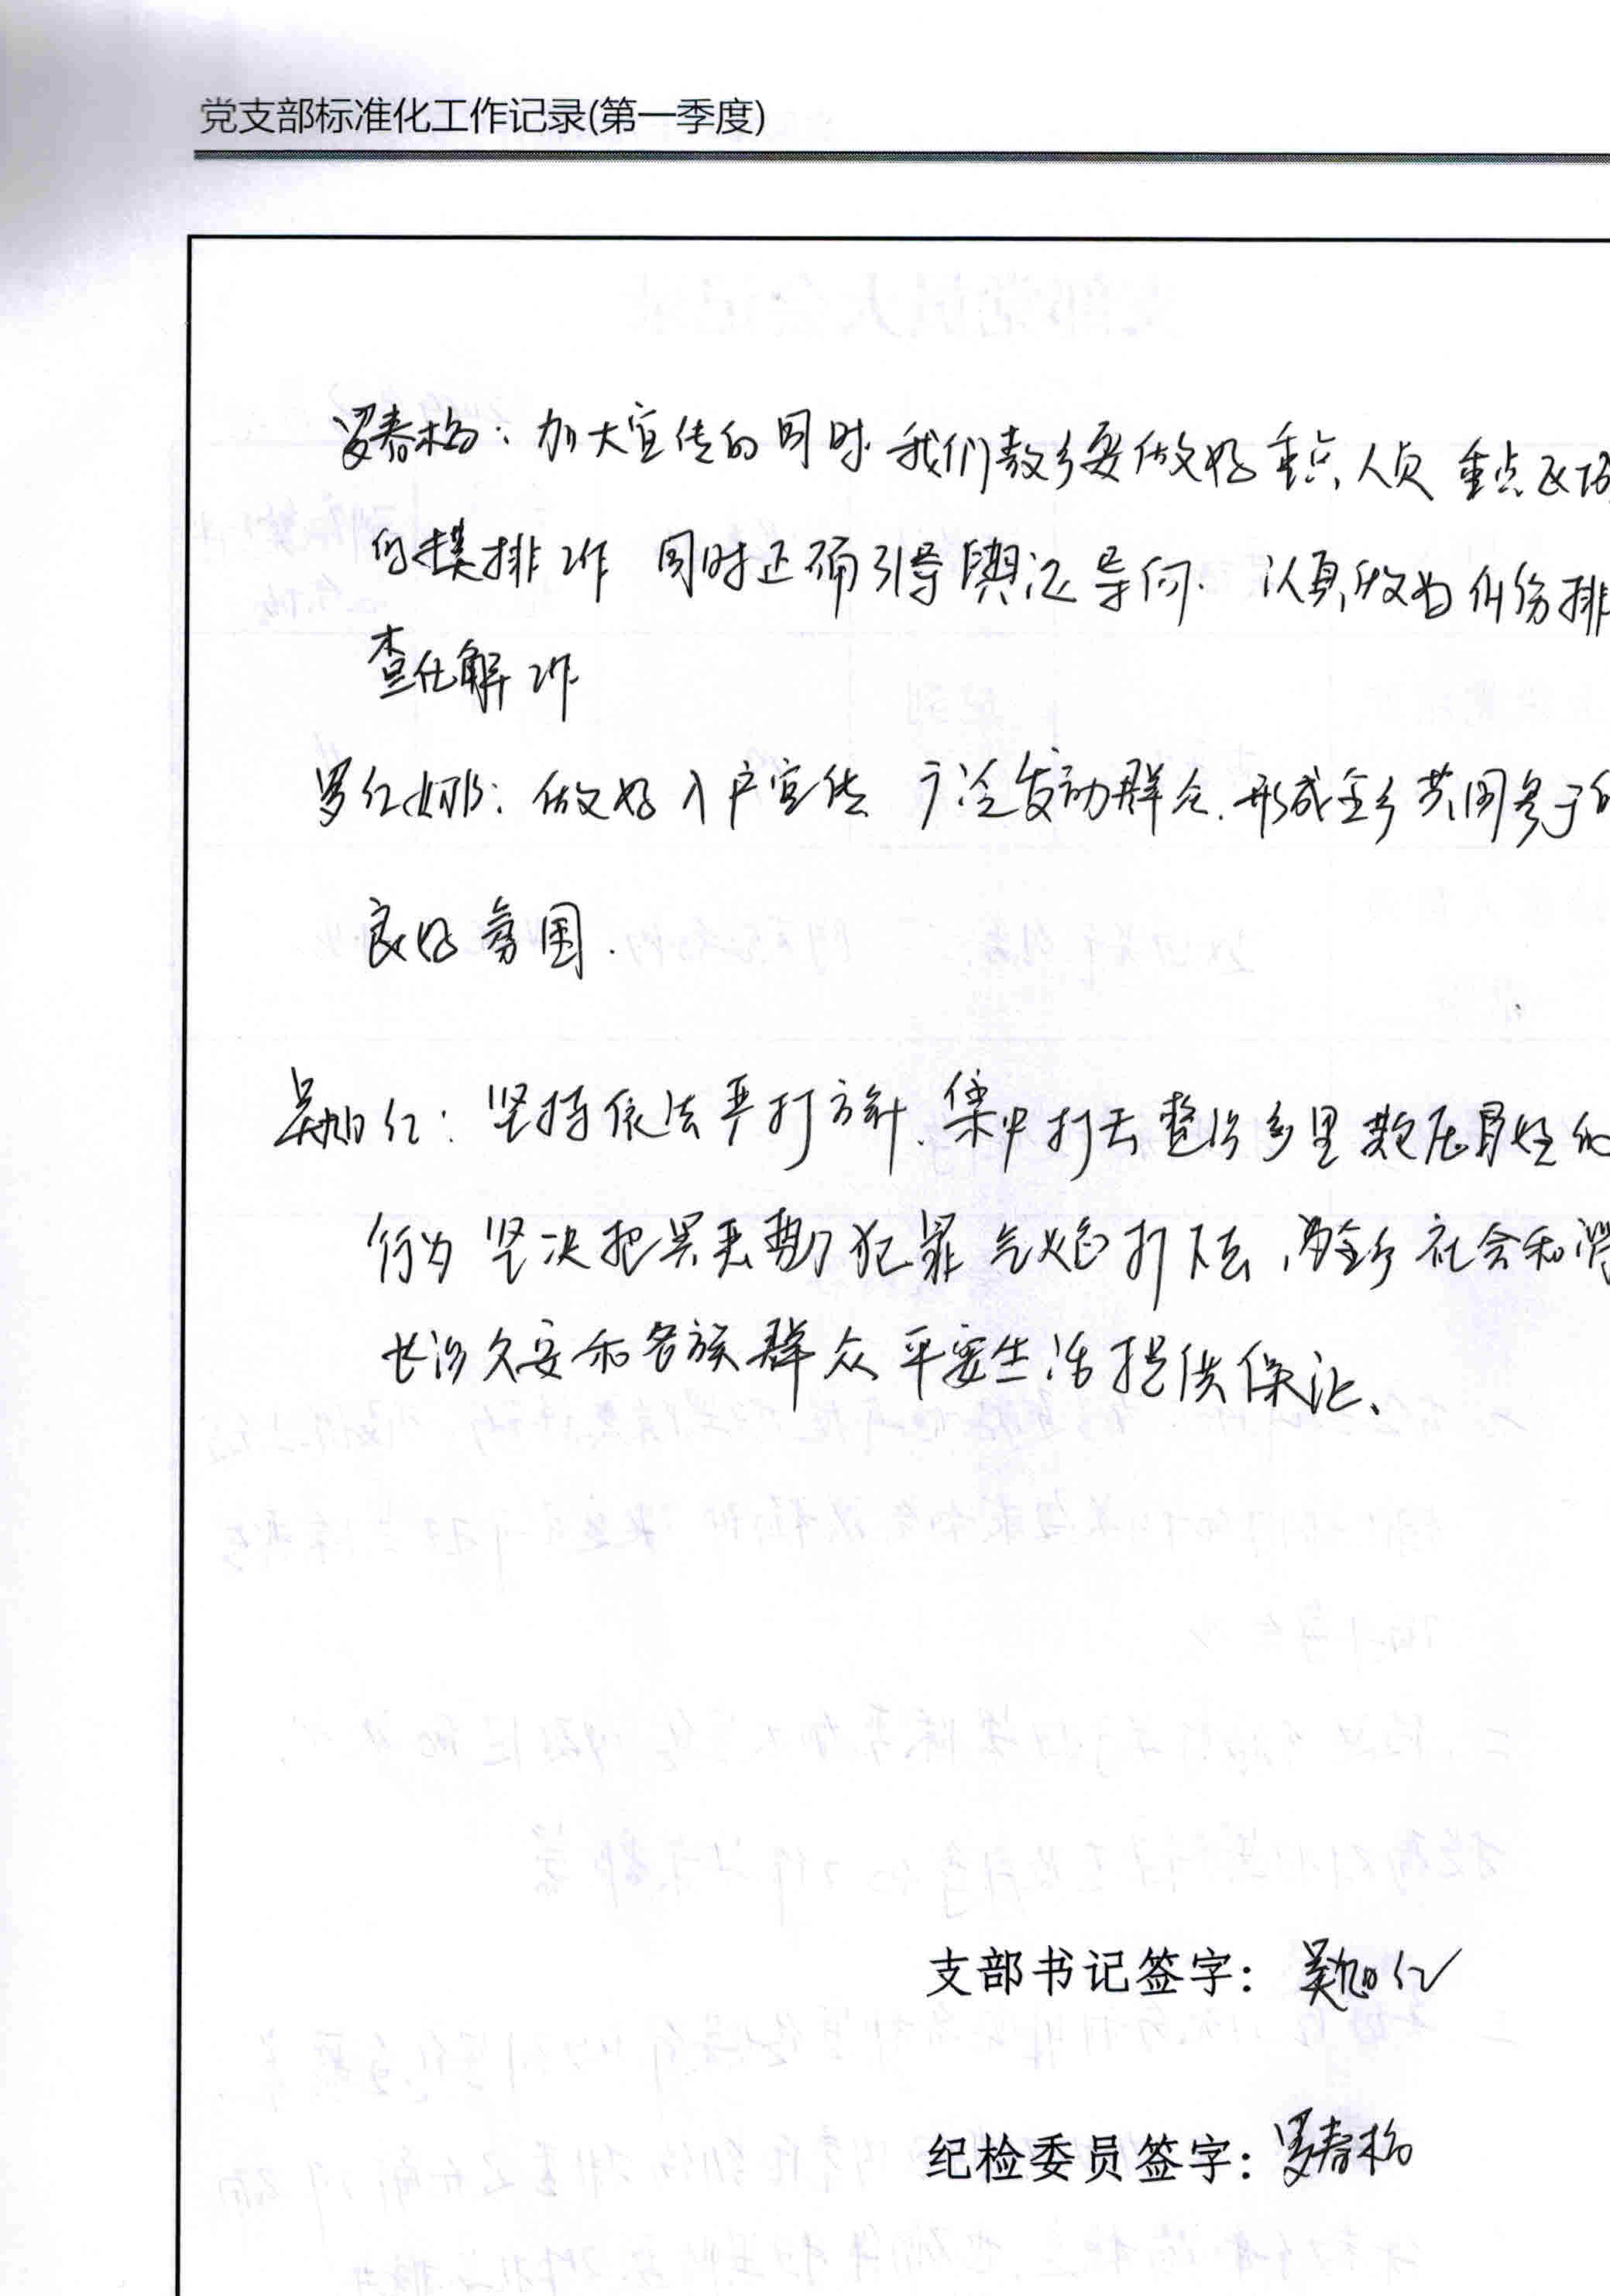 党支部标准化工作记录(第一季度)
罗春梅：加大宣传的同时 我们教乡要做好重点人员 重点区域
的摸排工作 同时正确引导舆论导向. 认真做为纠纷排
查化解工作
罗红娜：做好入户宣传 广泛发动群众.形成全乡共同参于的
良好氛围.
吴旭红：坚持依法严打方针.集中打击整治乡里欺压百姓的
行为 坚决把黑恶势力犯罪气焰打下去，为全乡社会和谐
长治久安和各族群众平安生活提供保证、
支部书记签字：吴旭红
纪检委员签字：罗春梅